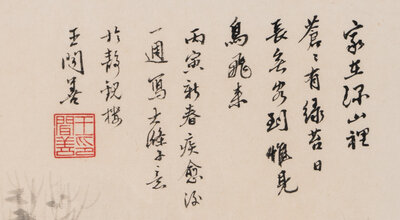 家在深山裡
蒼々有綠苔日
長無客到惟見
鳥飛來
丙寅新春疾愈後
一週寫大滌子意
於靜觀樓
王閒善